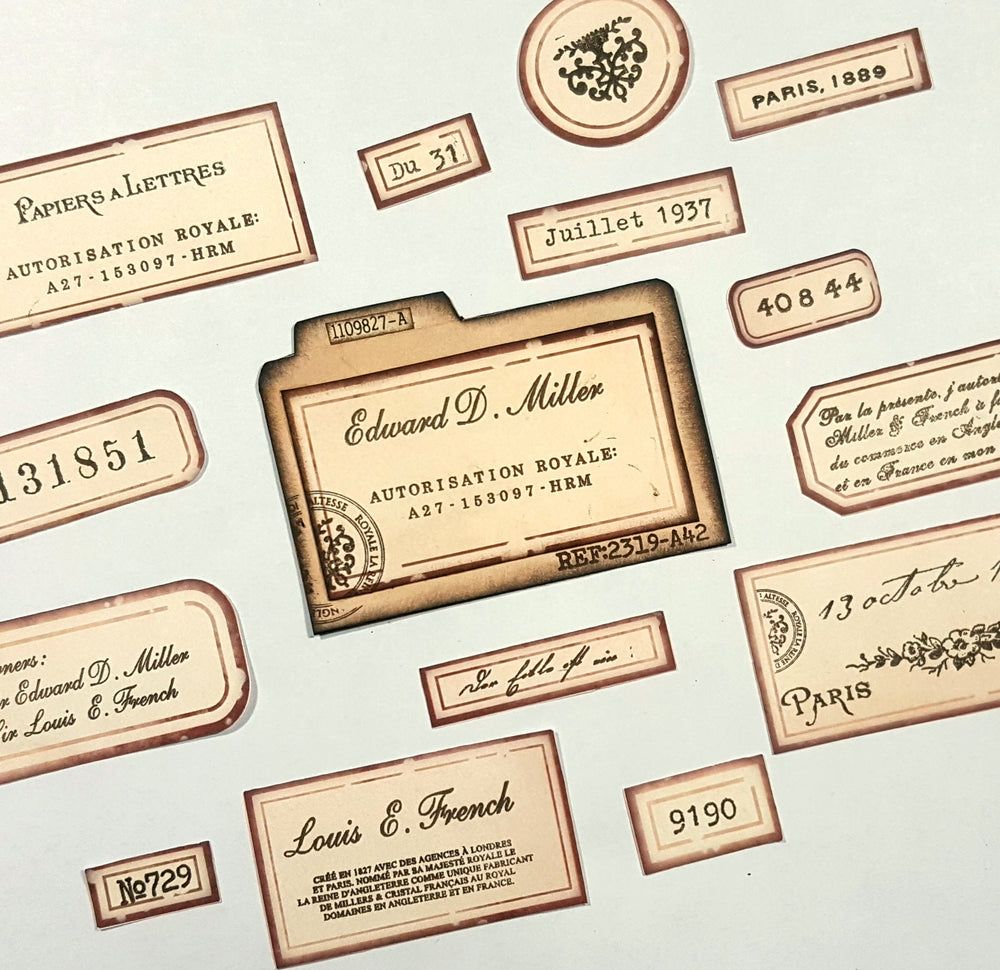 PARIS, 1889
Du 31
PAPIERS A LETTRES
AUTORISATION ROYALE:
A27-153097-HRM
Juillet 1937
408 44
1109827-A
Edward D. Miller
AUTORISATION ROYALE:
A27-153097-HRM
ALTESSE ROYALE LA
REF:2319-A42
131851
Par la présente, j'autori
Miller & French à
du commerce en Angle
et en France en mon
ALTESSE ROYALE LA REINE D
13 octobre 1
PARIS
ners:
r Edward D. Miller
Sir Louis E. French
9190
Louis E. French
CRÉÉ EN 1827 AVEC DES AGENCES À LONDRES
ET PARIS. NOMMÉ PAR SA MAJESTÉ ROYALE LE
LA REINE D'ANGLETERRE COMME UNIQUE FABRICANT
DE MILLERS & CRISTAL FRANÇAIS AU ROYAL
DOMAINES EN ANGLETERRE ET EN FRANCE.
No729